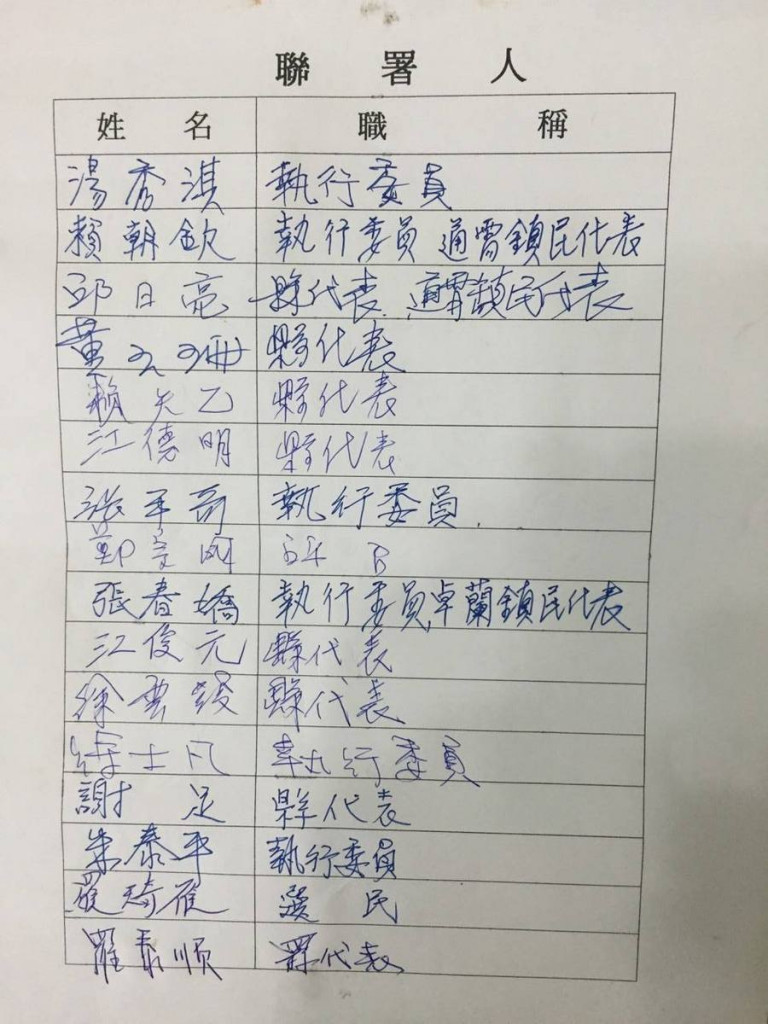 聯署人
姓名 職稱
湯秀淇 執行委員
賴朝欽 執行委員 通霄鎮民代表
邱日亮 縣代表 通霄鎮民代表
黃 縣代表
賴矢乙 縣代表
江德明 縣代表
張平哥 執行委員
鄭
張春嬌 執行委員卓蘭鎮民代表
江俊元 縣代表
徐雲 縣代表
士凡 執行委員
謝足 縣代表
朱泰平 執行委員
羅琦雁 選民
羅泰順 縣代表